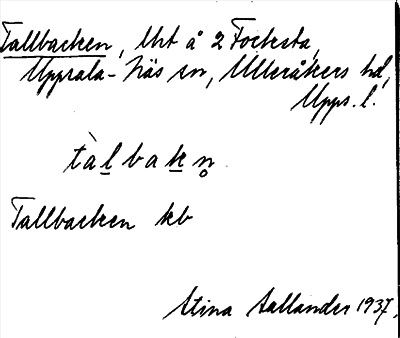 Tallbacken, lht å 2 Focksta,
Uppsala-Näs sn, Ulleråkers hd,
Upps. l.
tàl̲bak̲n̥
Tallbacken kb
Stina Sallander 1937.